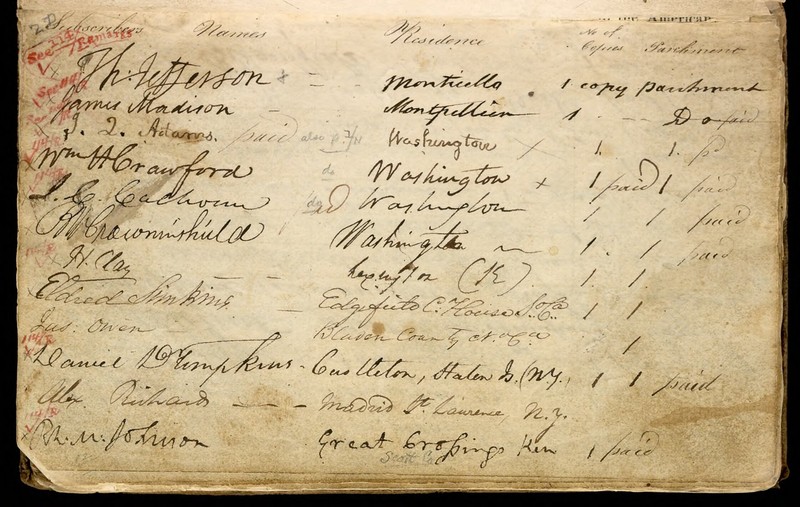 Subscribers Names Residence No of Copies Parchment
See Remarks
Th: Jefferson Monticello 1 copy parchment
James Madison Montpellier 1 Do paid
J. Q. Adams. paid also p. Washington 1. 1.
Wm H Crawford do Washington 1 paid 1 paid
J. C. Calhoun do Washington 1 1 paid
B W Crowninshield Washington 1. 1 paid
H. Clay Lexington (K) 1. 1.
Eldred Simkins Edgefield C. House So. Ca 1 1
Jas. Owen Bladen County N. Ca 1
Daniel D Tompkins Castleton, Staten Is. (N.Y. 1 1 paid
Alex Richards Madrid St. Laurence N. Y.
Rh. M. Johnson Great Crossings Ken 1 paid
Scott Co